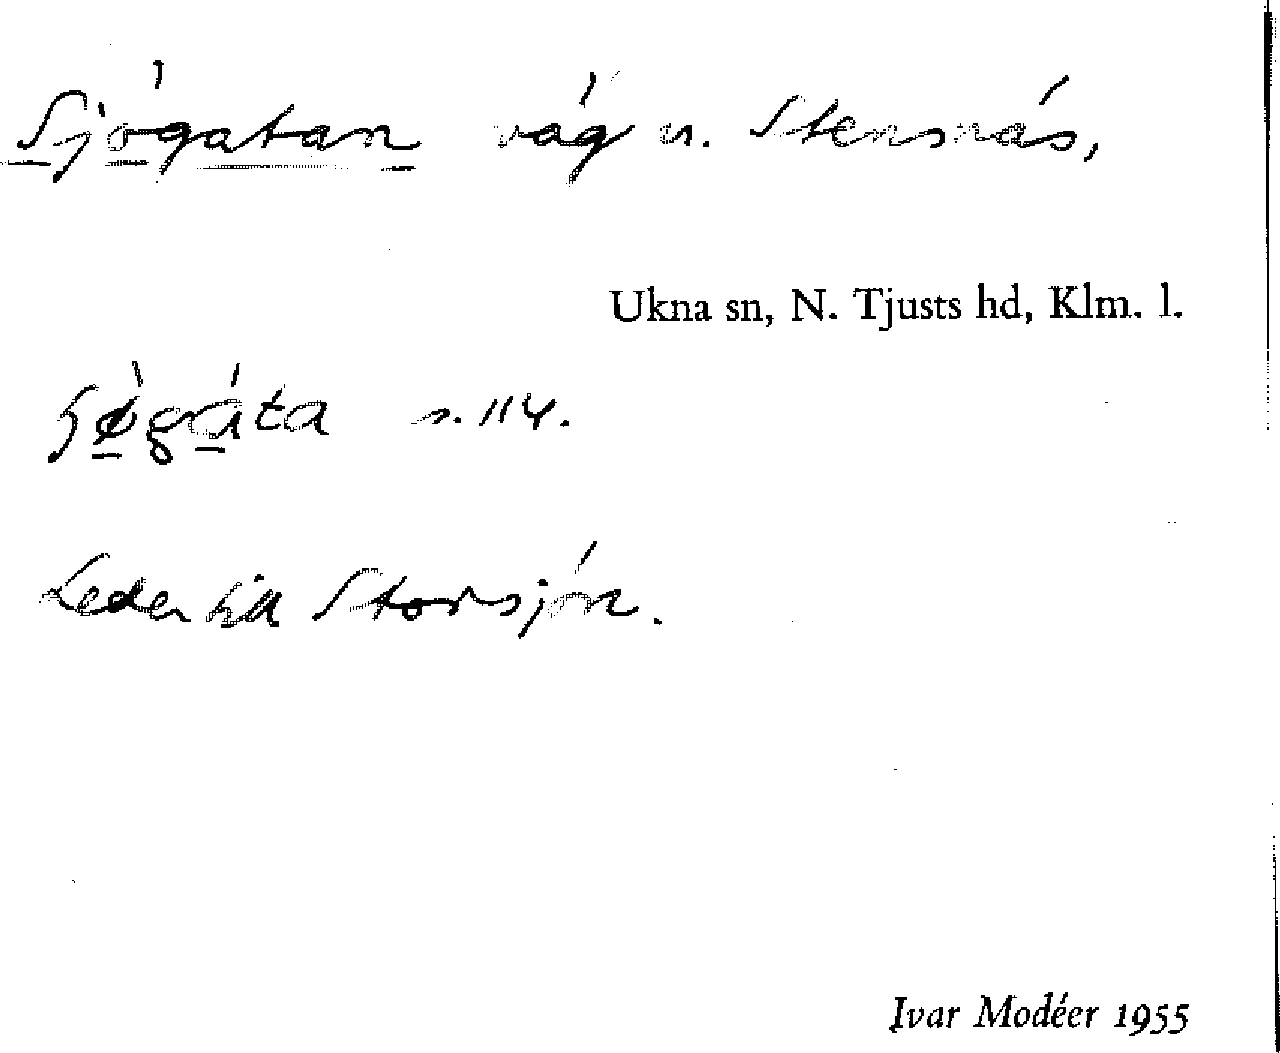 Sjögatan väg n. Stensnäs,
Ukna sn, N. Tjusts hd, Klm. l.
s. 114.
Leder till Storsjön.
Ivar Modéer 1955